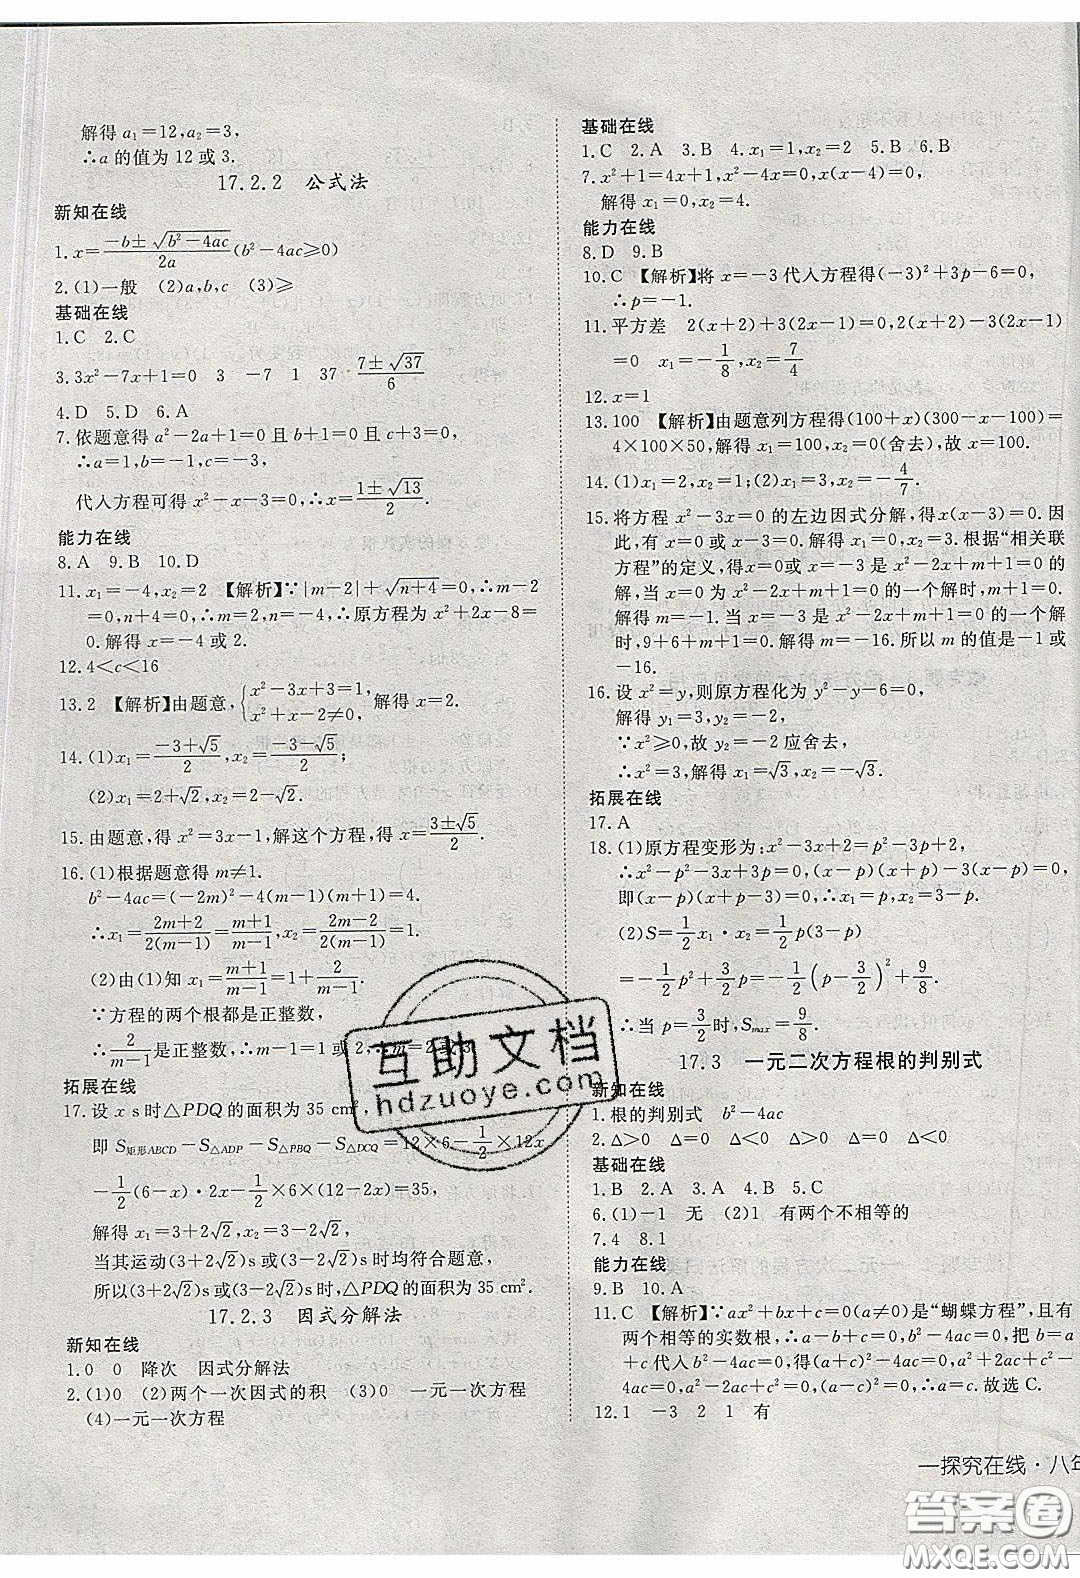 解得 a₁=12,a₂=3,
∴a 的值为 12 或 3.
17.2.2 公式法
新知在线
1.x=(-b±√(b²-4ac))/2a(b²-4ac≥0)
2.(1)一般 (2)a,b,c (3)≥
基础在线
1.C 2.C
3.3x²-7x+1=0 3 -7 1 37 (7±√37)/6
4.D 5.D 6.A
7.依题意得 a²-2a+1=0 且 b+1=0 且 c+3=0,
∴a=1,b=-1,c=-3,
代入方程可得 x²-x-3=0,∴x=(1±√13)/2.
能力在线
8.A 9.B 10.D
11.x₁=-4,x₂=2 【解析】∵|m-2|+√(n+4)=0,∴m-2
=0,n+4=0,∴m=2,n=-4,∴原方程为 x²+2x-8=
0.解得 x=-4 或 2.
12.4<c<16
13.2 【解析】由题意,{x²-3x+3=1, x²+x-2≠0, 解得 x=2.
14.(1)x₁=(-3+√5)/2,x₂=(-3-√5)/2;
(2)x₁=2+√2,x₂=2-√2.
15.由题意,得 x²=3x-1,解这个方程,得 x=(3±√5)/2.
16.(1)根据题意得 m≠1.
b²-4ac=(-2m)²-4(m-1)(m+1)=4.
∴x₁=(2m+2)/2(m-1)=(m+1)/(m-1),x₂=(2m-2)/2(m-1)=1.
(2)由(1)知 x₁=(m+1)/(m-1)=1+2/(m-1).
∵方程的两个根都是正整数,
∴2/(m-1)是正整数,∴m-1=1 或 2,∴m=2 或 3.
拓展在线
17.设 x s 时△PDQ 的面积为 35 cm²,
即 S矩形ABCD-S△ADP-S△PBQ-S△DCQ=12×6-1/2×12x
-1/2(6-x)·2x-1/2×6×(12-2x)=35,
解得 x₁=3+2√2,x₂=3-2√2.
当其运动(3+2√2)s 或(3-2√2)s 时均符合题意,
所以(3+2√2)s 或(3-2√2)s 时,△PDQ 的面积为 35 cm².
17.2.3 因式分解法
新知在线
1.0 0 降次 因式分解法
2.(1)0 (2)两个一次因式的积 (3)0 一元一次方程
(4)一元一次方程
基础在线
1.C 2.A 3.B 4.x₁=1,x₂=2 5.B 6.B
7.x²+1=4x+1,
解得 x₁=0,x₂=4.
能力在线
8.D 9.B
10.C 【解析】将 x=-3 代入方程得(-3)²+3p-6=0,
∴p=-1.
11.平方差 2(x+2)+3(2x-1)=0,2(x+2)-3(2x-1)
=0 x₁=-1/8,x₂=7/4
12.x=1
13.100 【解析】由题意列方程得(100+x)(300-x-100)=
4×100×50,解得 x₁=100,x₂=0(舍去),故 x=100.
14.(1)x₁=2,x₂=1;(2)x₁=3,x₂=-4/7.
15.将方程 x²-3x=0 的左边因式分解,得x(x-3)=0.因
此,有 x=0 或 x-3=0.解得 x=0,x=3.根据“相关联
方程”的定义,得x=0或x=-3是 x²-2x+m+1=0 的
解,当 x=0 为 x²-2x+m+1=0 的一个解时,m+1=0.
解得 m=-1.当 x=-3 是 x²-2x+m+1=0 的一个解
时,9+6+m+1=0.解得 m=-16.所以 m 的值是-1 或
-16.
16.设 x²=y,则原方程化为 y²-y-6=0,
解得 y₁=3,y₂=-2,
∵x²≥0,故 y=-2 应舍去,
∴x²=3,解得 x₁=√3,x₂=-√3.
拓展在线
17.A
18.(1)原方程变形为:x²-3x+2=p²-3p+2,
∴x²-p²-3x+3p=0,(x+p)(x-p)-3(x-p)=0,
即(x-p)(x+p-3)=0,∴x₁=p,x₂=3-p.
(2)S=1/2x₁·x₂=1/2p(3-p)
=-1/2p²+3/2p=-1/2(p-3/2)²+9/8.
∴当 p=3/2时,Smax=9/8.
17.3 一元二次方程根的判别式
新知在线
1.根的判别式 b²-4ac
2.Δ>0 Δ=0 Δ<0 Δ>0 Δ=0 Δ<0
基础在线
1.B 2.A 3.A 4.B 5.C
6.(1)-1 无 (2)1 有两个不相等的
7.4 8.1
能力在线
9.B 10.A
11.C 【解析】∵ax²+bx+c=0(a≠0)是“蝴蝶方程”,且有
两个相等的实数根,∴a+c=b,b²-4ac=0,把 b=a
+c 代入 b²-4ac=0,得(a+c)²-4ac=0,a²+2ac+
c²-4ac=0,a²-2ac+c²=0,(a-c)²=0,∴a=c.故选 C.
12.1 -3 2 1 有
一探究在线·八年
互助文档
hdzuoye.com
答案圈
MXQE.COM